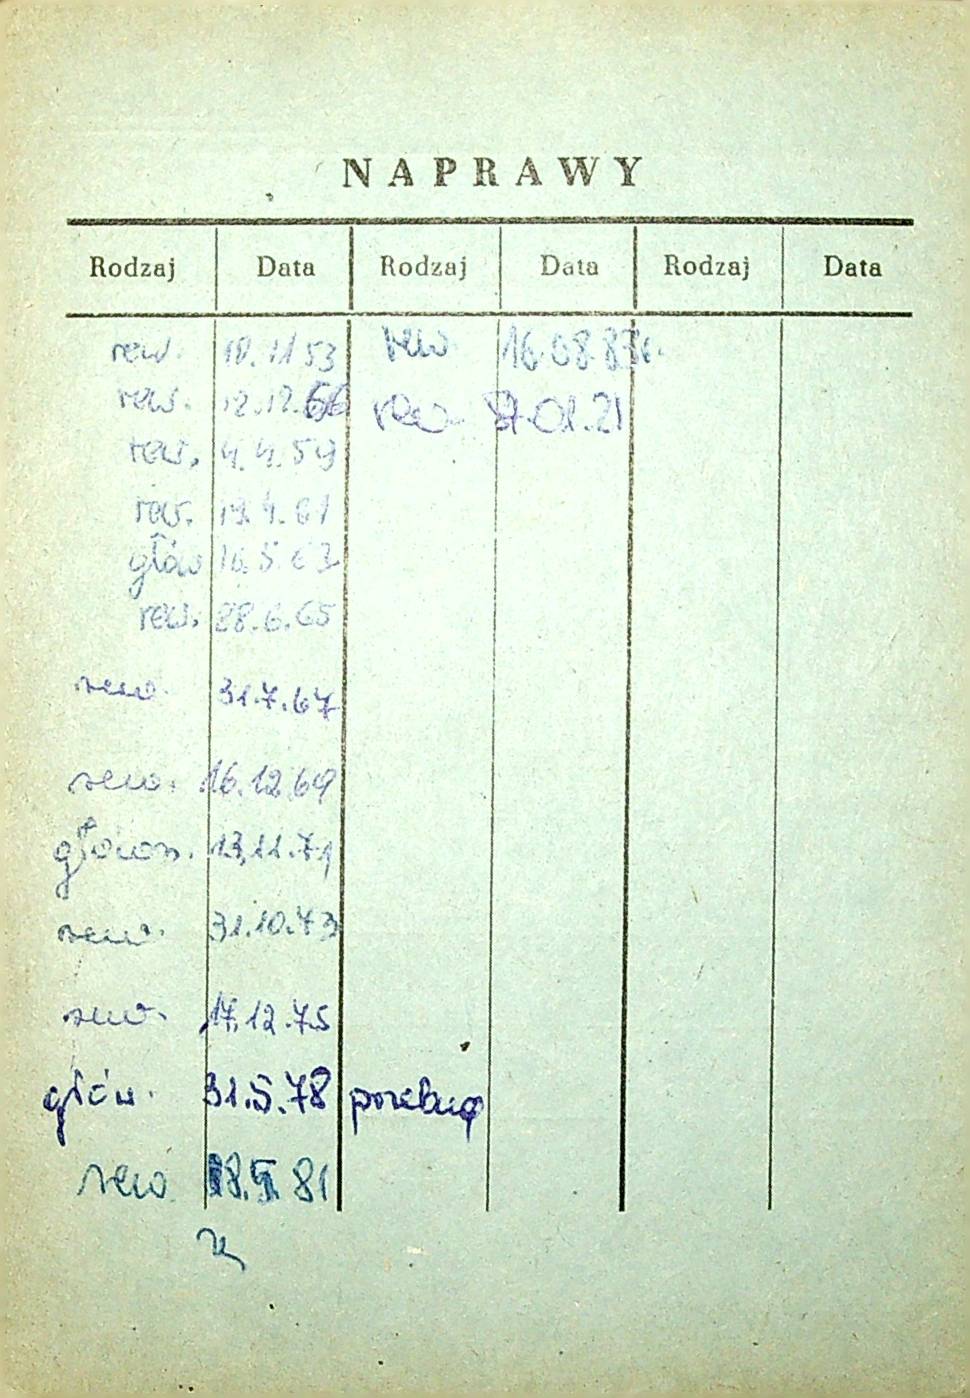 NAPRAWY
Rodzaj Data Rodzaj Data Rodzaj Data
rew. 18.11 53 rew 16.08.83r.
rew. 12.12.66 rew 87.01.21
rew. 4.4.59
rew. 19.4.61
głów 16.5.63
rew. 28.6.65
rew. 31.7.67
rew. 16.12.69
główn. 13.11.71
rew. 31.10.73
rew. 17.12.75
głów. 31.5.78
rew 81